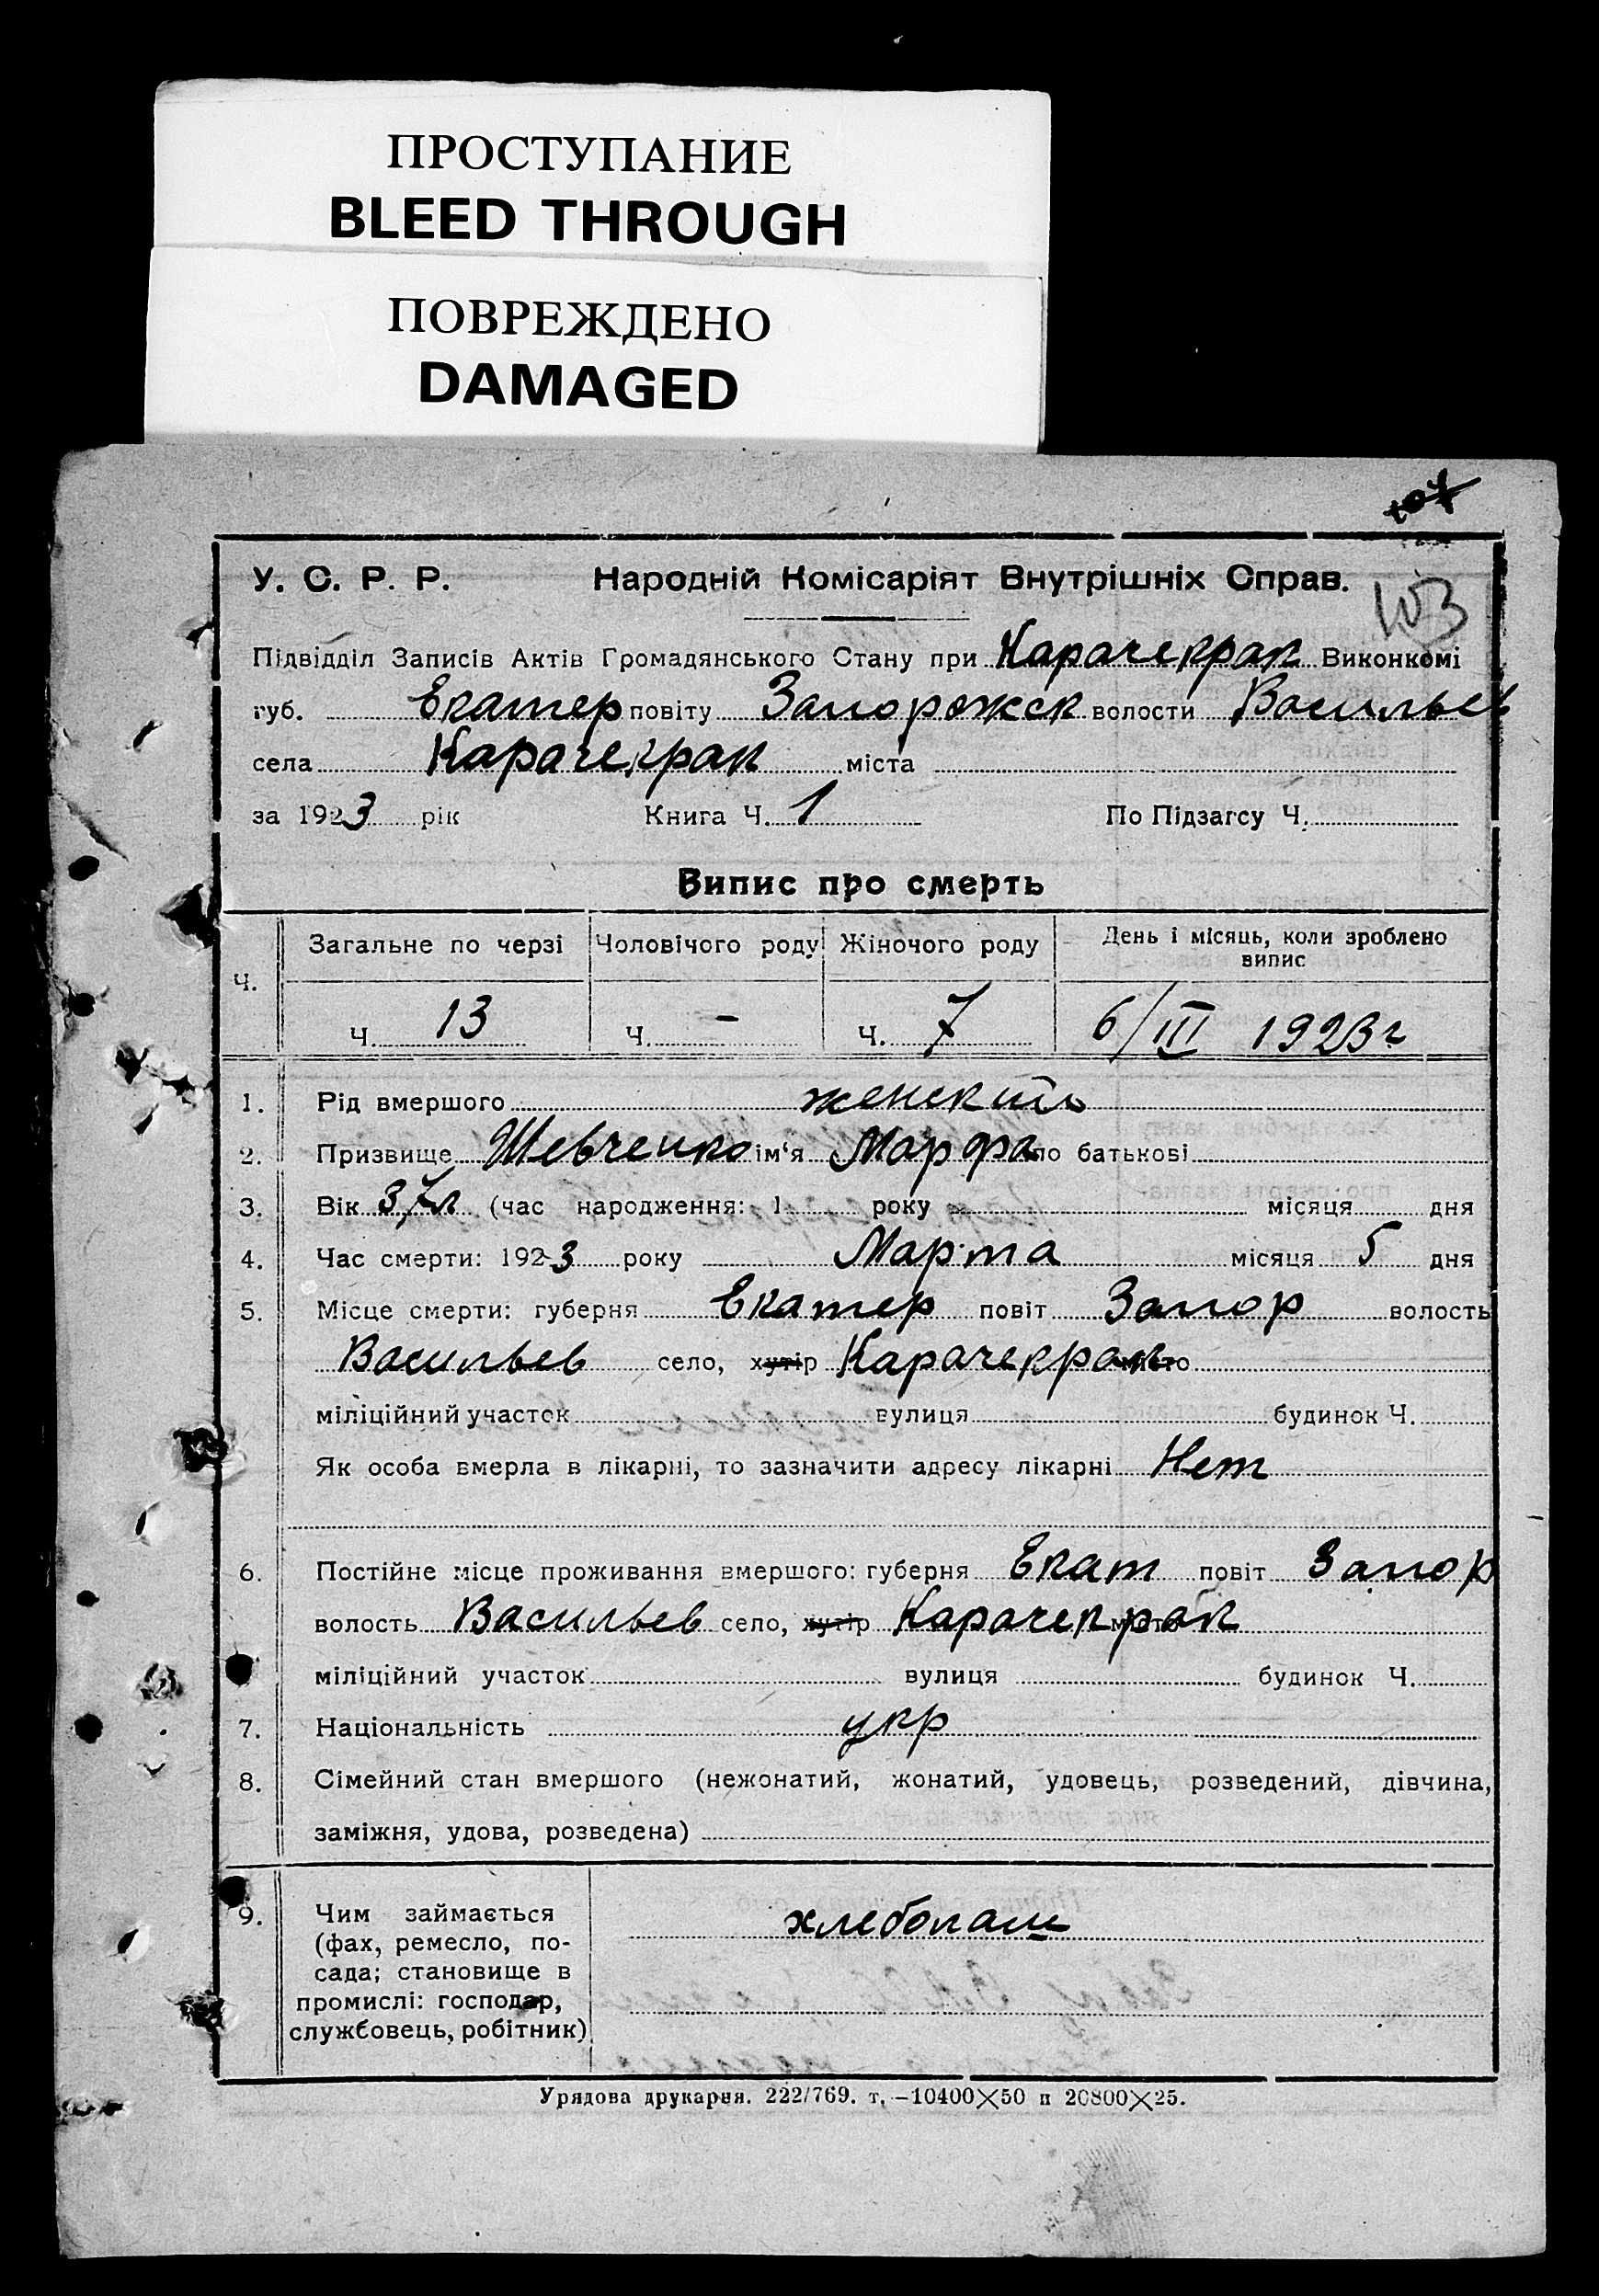 ПРОСТУПАНИЕ
BLEED THROUGH
ПОВРЕЖДЕНО
DAMAGED
107
У. С. Р. Р. Народній Комісаріят Внутрішніх Справ.
103
Підвідділ Записів Актів Громадянського Стану при Карачекрак Виконкомі
губ. Екатер повіту Запорожск волости Васильев
села Карачекрак міста
за 1923 рік Книга Ч. 1 По Підзагсу Ч.
Випис про смерть
Ч. Загальне по черзі Чоловічого роду Жіночого роду День і місяць, коли зроблено
випис
Ч. 13 Ч. - Ч. 7 6/III 1923 г
1. Рід вмершого женский
2. Призвище Шевченко ім'я Марфа по батькові
3. Вік (час народження: 1 року місяця дня
4. Час смерти: 1923 року Марта місяця 5 дня
5. Місце смерти: губерня Екатер повіт Запор волость
Васильев село, хутір Карачекрак місто
міліційний участок вулиця будинок Ч.
Як особа вмерла в лікарні, то зазначити адресу лікарні Нет
6. Постійне місце проживання вмершого: губерня Екат повіт Запор
волость Васильев село, хутір Карачекрак місто
міліційний участок вулиця будинок Ч.
7. Національність укр
8. Сімейний стан вмершого (нежонатий, жонатий, удовець, розведений, дівчина,
заміжня, удова, розведена)
9. Чим займається хлебопаш
(фах, ремесло, по-
сада; становище в
промислі: господар,
службовець, робітник)
Урядова друкарня. 222/769. т. —10400×50 п 20800×25.